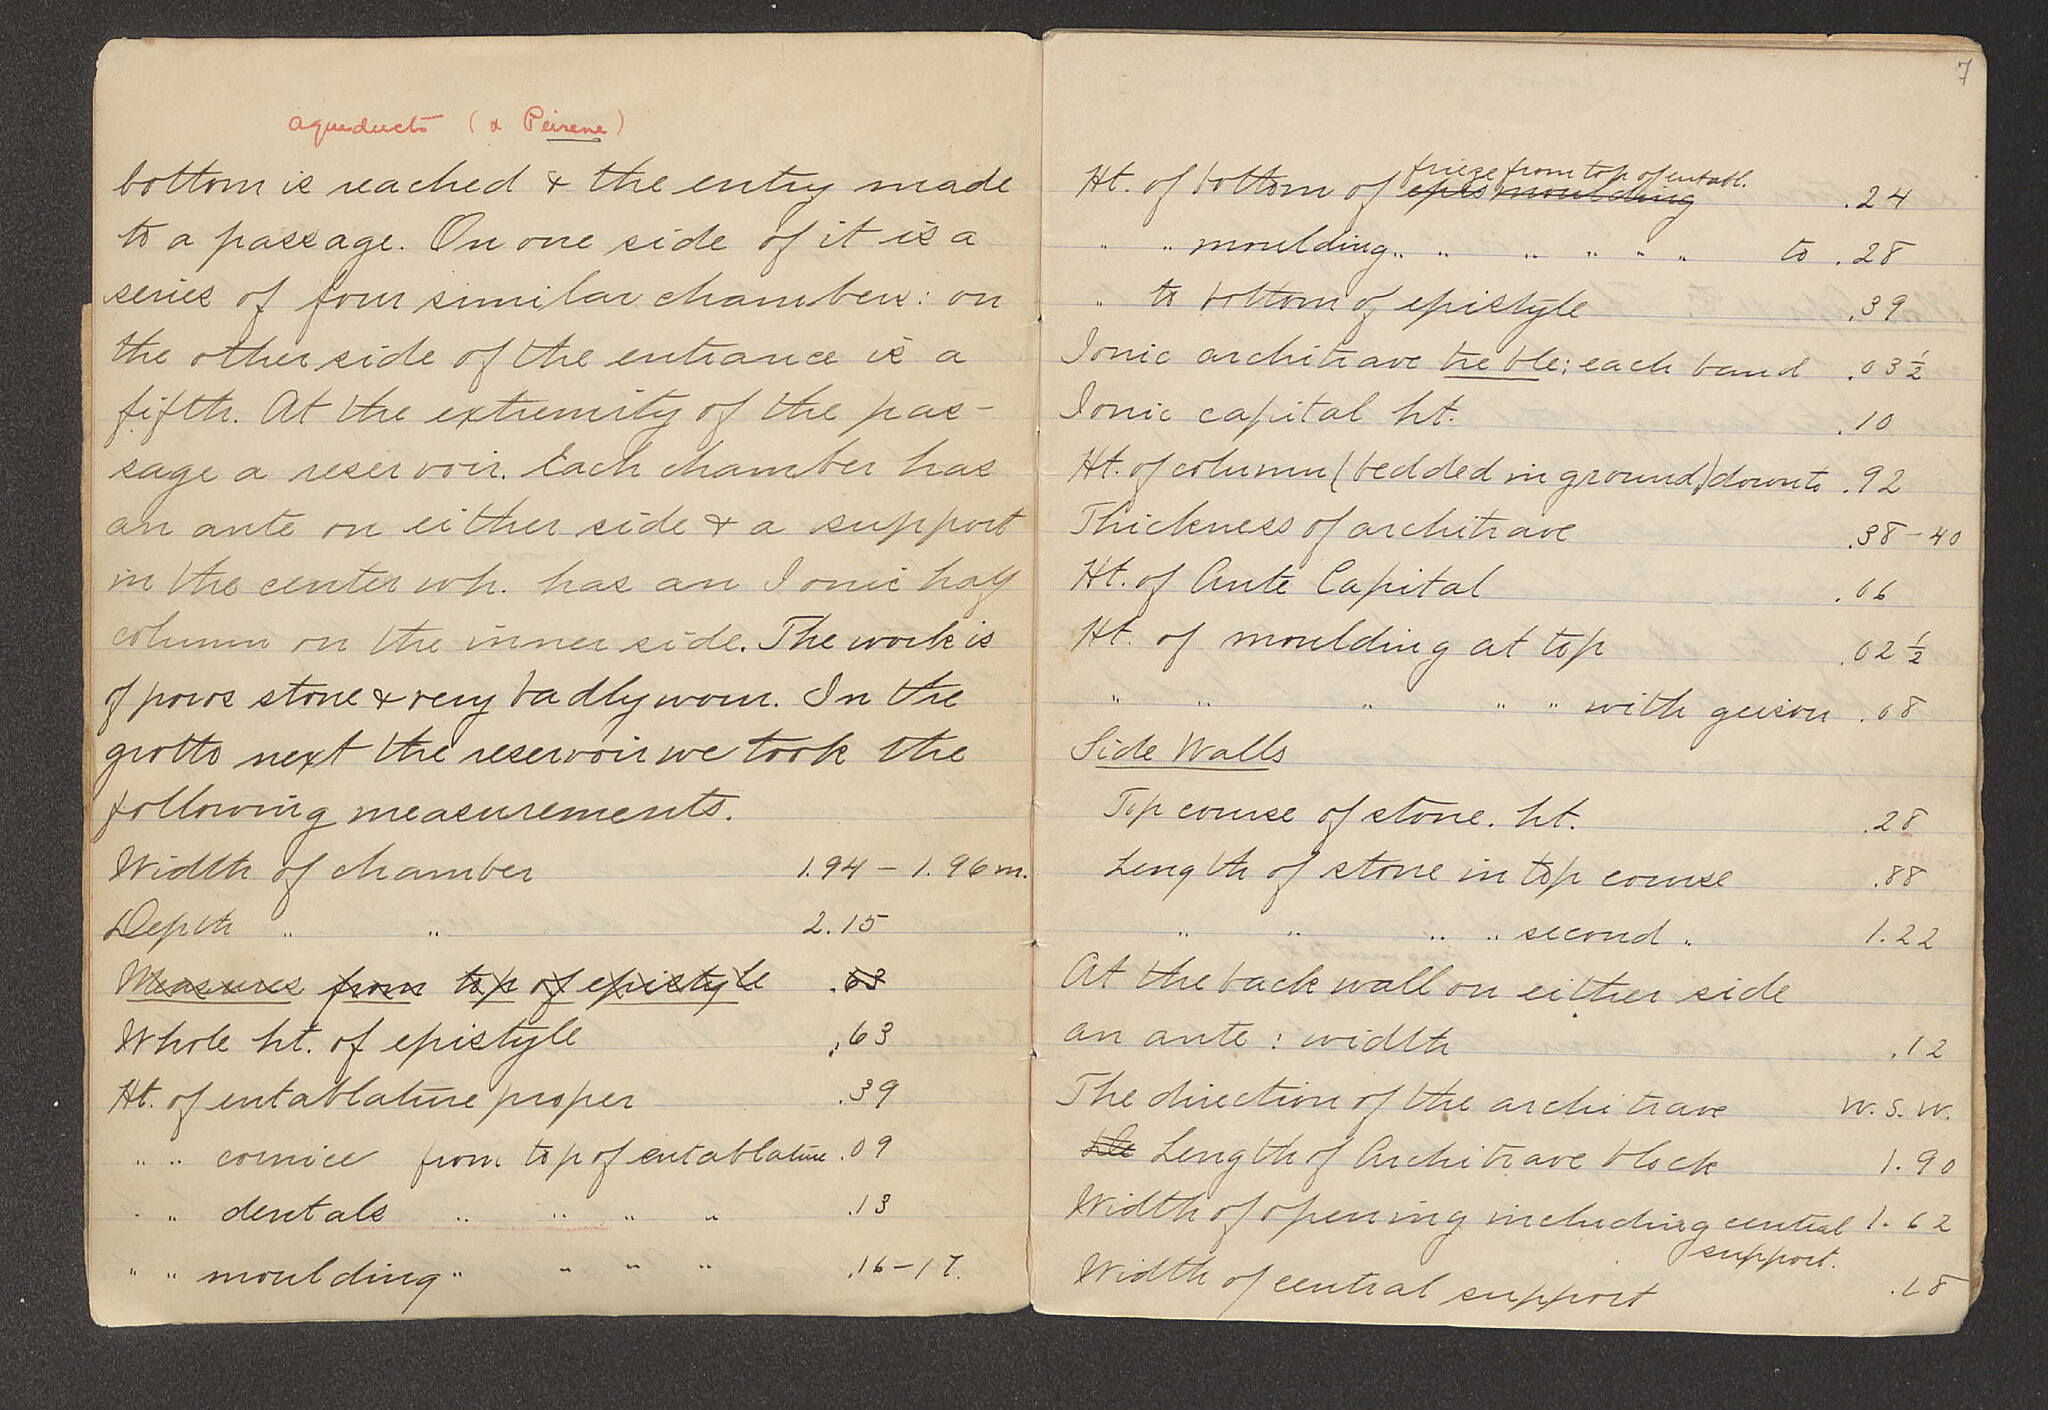 aqueducts (& Peirene)
bottom is reached & the entry made
to a passage. On one side of it is a
series of four similar chambers: on
the other side of the entrance is a
fifth. At the extremity of the pas-
sage a reservoir. Each chamber has
an ante on either side & a support
in the center wh. has an Ionic half
column on the inner side. The work is
of poros stone & very badly worn. In the
grotto next the reservoir we took the
following measurements.
Width of chamber 1.94 – 1.96 m.
Depth " " 2.15
Measures from top of epistyle .63
Whole ht. of epistyle .63
Ht. of entablature proper .39
" " cornice from top of entablature .09
" " dentals " " " " .13
" " moulding " " " " .16–17.
7
frieze from top of entabl.
Ht. of bottom of epis moulding .24
" " moulding " " " " " " to .28
" to bottom of epistyle .39
Ionic architrave treble; each band .03½
Ionic capital ht. .10
Ht. of column (bedded in ground) down to .92
Thickness of architrave .38–40
Ht. of Ante Capital .06
Ht. of moulding at top .02½
" " " " " with geison .08
Side Walls
Top course of stone. ht. .28
Length of stone in top course .88
" " " " second " 1.22
At the back wall on either side
an ante: width .12
The direction of the architrave W.S.W.
Length of Architrave block 1.90
Width of opening including central 1.62
support.
Width of central support .18